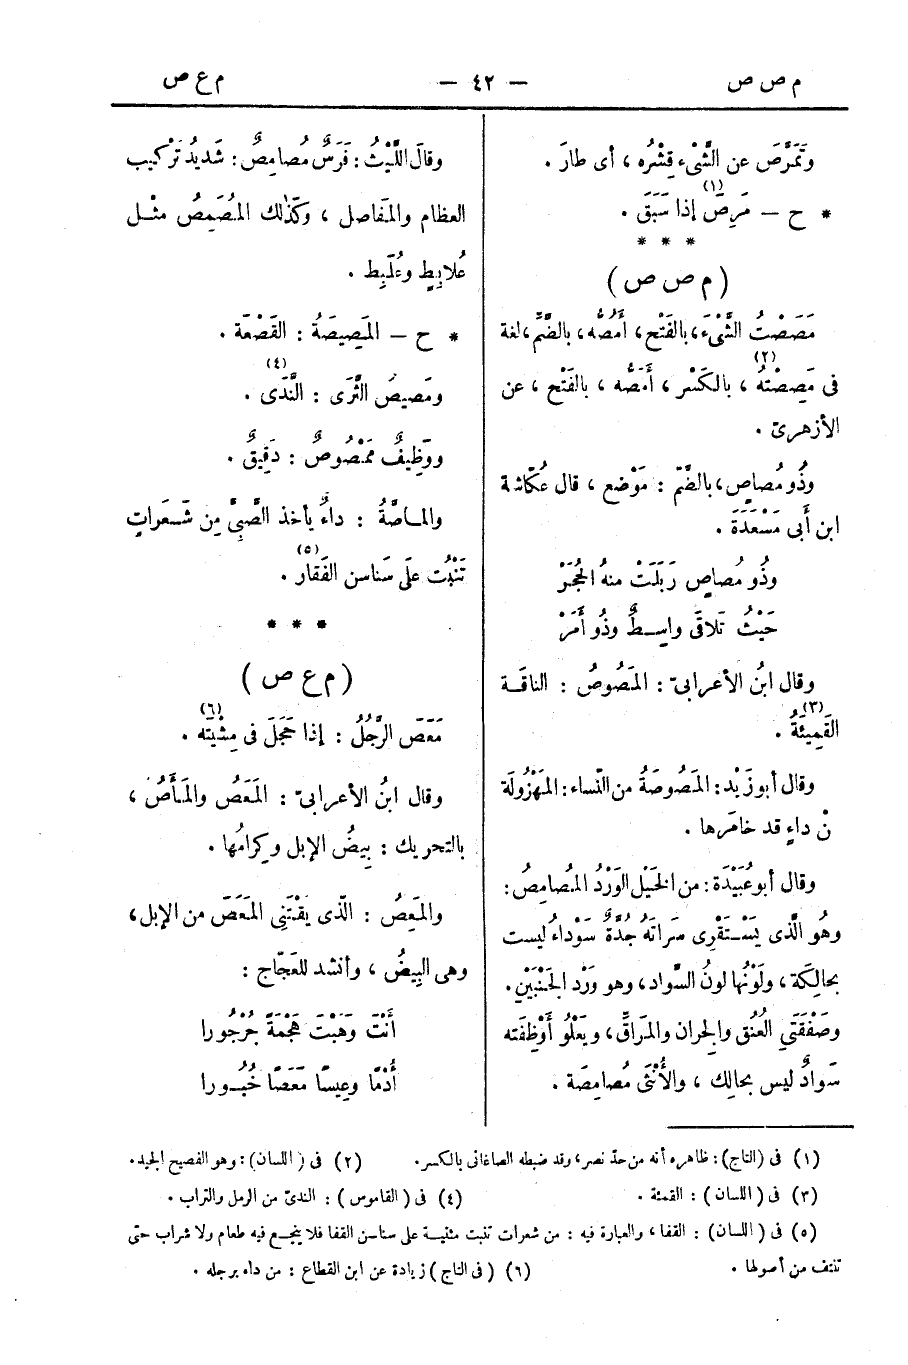 م ص ص — ٤٢ — م ع ص
وتَمَرَّصَ عن الشَّىْءِ قِشْرُه ، أى طارَ .
* ح – مَرِصَ(١) إذا سَبَقَ .
* * *
( م ص ص )
مَصَصْتُ الشَّىْءَ، بالفَتْح، أَمُصُّه، بالضَّمِّ، لغة
فى مَصِصْتُه(٢) ، بالكَسْر ، أَمَصُّه ، بالفَتْح ، عن
الأزهرىّ .
وذُو مُصاصٍ، بالضَّمّ : مَوْضع ، قال عُكّاشة
ابن أَبى مَسْعَدَةَ .
وذُو مُصاصٍ رَبَلَتْ منهُ الحُجَرْ
حَيْثُ تَلاقَى واسِطٌ وذُو أَمَرْ
وقال ابنُ الأعرابىّ : المَصُوصُ : الناقَة
القَمِيئَةُ(٣) .
وقال أبو زَيْد : المَصُوصَةُ من النّساء : المَهْزُولَة
نْ داءٍ قد خامَرها .
وقال أبو عُبَيْدَة : من الخَيْل الوَرْدُ المُصامِصُ :
وهُو الَّذى يَسْتَقْرِى سَراتَهُ جُدَّةٌ سَوْداءُ ليست
بحالِكَة ، ولَوْنُها لونُ السَّواد ، وهو وَرْد الجَنْبَيْنِ .
وصَفْقَتَىِ العُنُق والجِران والمَراقِّ ، ويَعْلُو أَوْظِفَته
سَوادٌ ليس بحالِك ، والأُنْثَى مُصامِصَة .
وقالَ اللَّيْثُ : فَرَسٌ مُصامِصٌ : شَدِيدُ تَرْكيب
العظام والمَفاصل ، وكَذٰلك المُصَمِصُ مثْل
عُلابِطٍ وعُلَبِط .
* ح – المَصِيصَةُ : القَصْعَة .
ومَصيصُ الثَّرَى : النَّدَى(٤) .
ووَظِيفٌ مَمْصُوصٌ : دَقِيقٌ .
والماصَّةُ : داءٌ يأخذ الصَّبِىَّ مِن شَعَراتٍ
تَنْبُت علَى سَناسن الفَقار(٥) .
* * *
( م ع ص )
مَعَصَ الرَّجُلُ : إذا حَجَلَ فى مِشْيَته(٦) .
وقال ابنُ الأعرابىّ : المَعَصُ والمَأَصُ ،
بالتحريك : بِيضُ الإبل وكِرامُها .
والمَعِصُ : الَّذى يَقْتَنِى المَعَصَ من الإبل ،
وهى البِيضُ ، وأنشد للعَجّاج :
أَنْتَ وَهَبْتَ هَجْمَةً جُرْجُورا
أُدْمًا وعِيسًا مَعَصًا خُبُورا
(١) فى (التاج) : ظاهره أنه من حدّ نصر، وقد ضبطه الصاغانى بالكسر. (٢) فى (اللسان) : وهو الفصيح الجيد.
(٣) فى (اللسان) : القمئة . (٤) فى (القاموس) : الندىّ من الرمل والتراب .
(٥) فى (اللسان) : القفا ، والعبارة فيه : من شعرات تنبت مثنية على سناسن القفا فلا ينجع فيه طعام ولا شراب حتى
تنتف من أصولها . (٦) (فى التاج) زيادة عن ابن القطاع : من داء برجله .